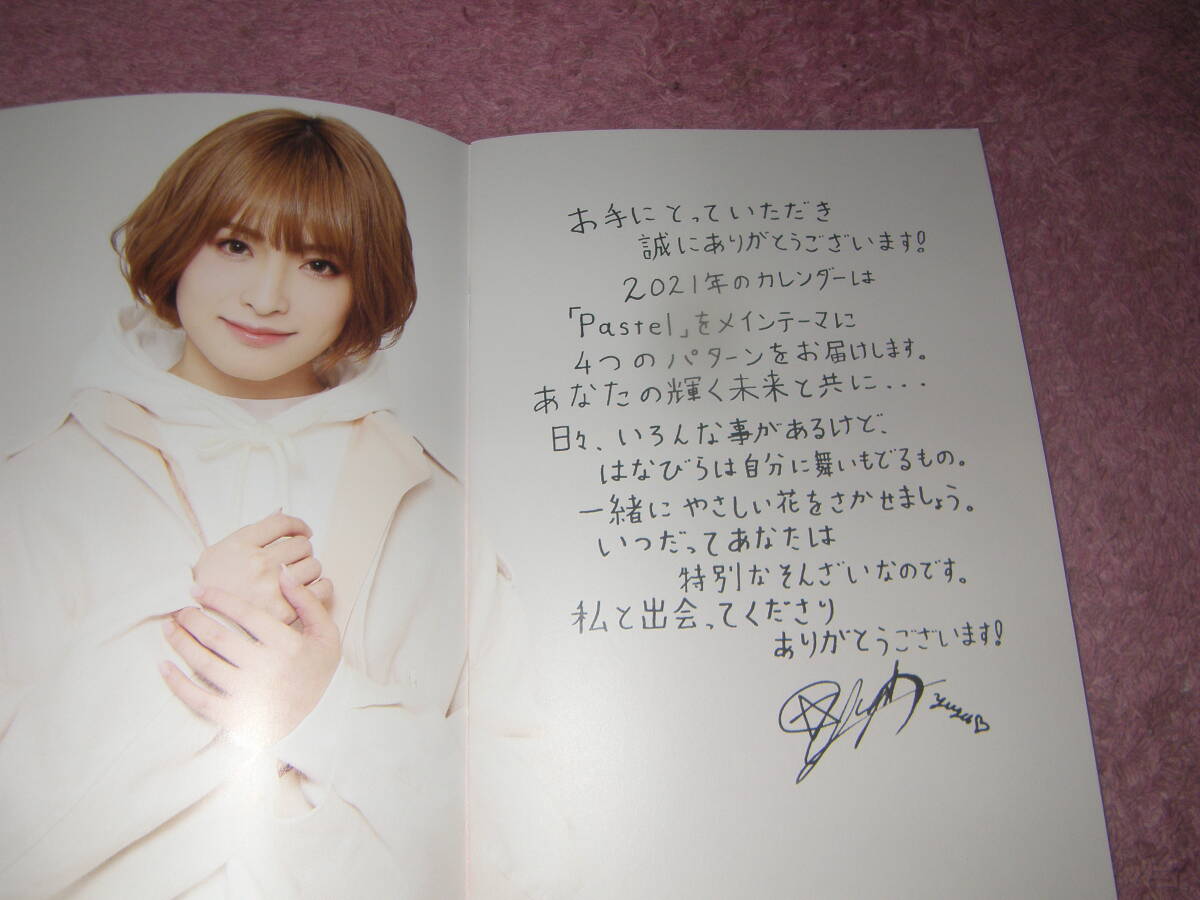 お手にとっていただき
誠にありがとうございます!
2021年のカレンダーは
「Pastel」をメインテーマに
4つのパターンをお届けします。
あなたの輝く未来と共に...
日々、いろんな事があるけど、
はなびらは自分に舞いもどるもの。
一緒にやさしい花をさかせましょう。
いつだってあなたは
特別なそんざいなのです。
私と出会ってくださり
ありがとうございます!
yuyu♡